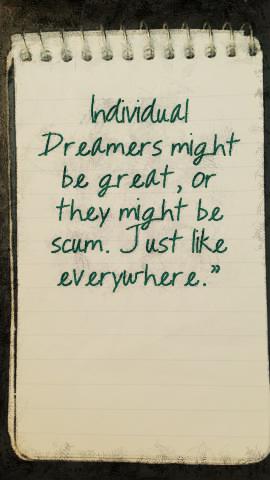 Individual
Dreamers might
be great, or
they might be
scum. Just like
everywhere.”